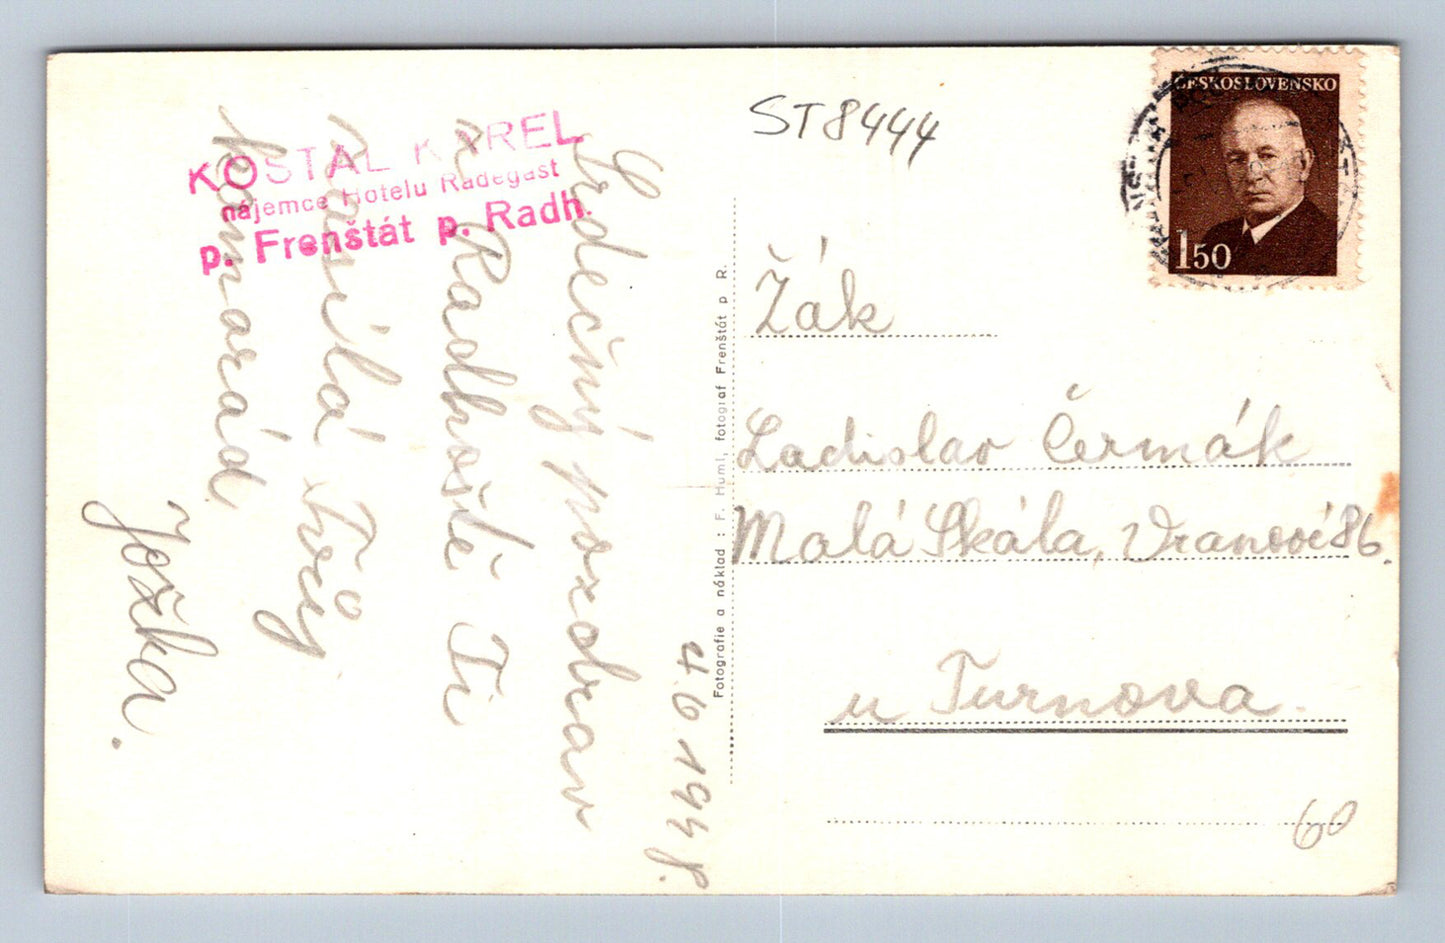 KOSTAL KAREL
nájemce Hotelu Radegast
p. Frenštát p. Radh.
Srdečný pozdrav
z Radhoště Ti
zasílá Tvůj
kamarád
Jožka.
4.6.1948.
Fotografie a náklad : F. Huml, fotograf Frenštát p R.
ST8444
ČESKOSLOVENSKO
1.50
Žák
Ladislav Čermák
Malá Skála, Vranové 86.
u Turnova.
60